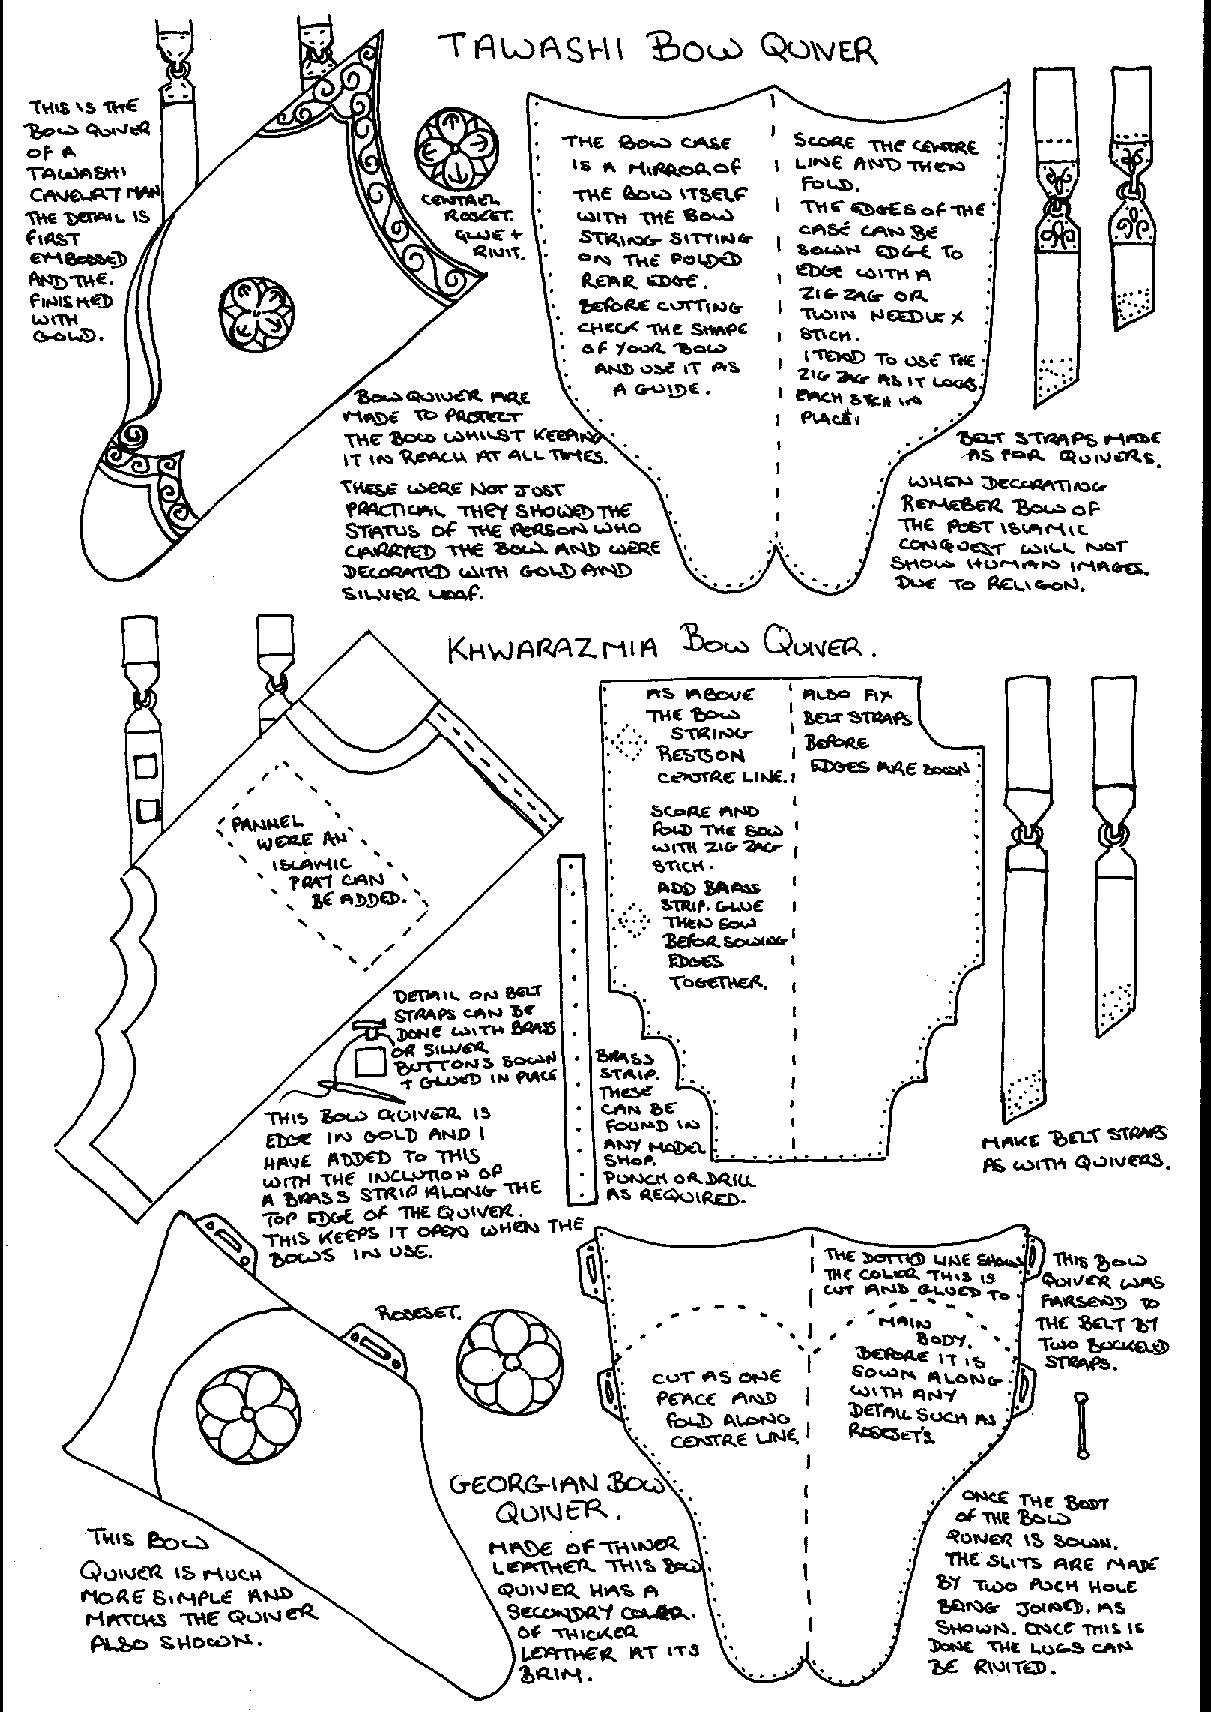 TAWASHI BOW QUIVER
THIS IS THE
BOW QUIVER
OF A
TAWASHI
CAVELRY MAN
THE DETAIL IS
FIRST
EMBOSSED
AND THE.
FINISHED
WITH
GOLD.
CENTRAL
ROSSET.
GLUE +
RIVIT.
THE BOW CASE
IS A MIRROR OF
THE BOW ITSELF
WITH THE BOW
STRING SITTING
ON THE FOLDED
REAR EDGE.
BEFORE CUTTING
CHECK THE SHAPE
OF YOUR BOW
AND USE IT AS
A GUIDE.
SCORE THE CENTRE
LINE AND THEN
FOLD.
THE EDGES OF THE
CASE CAN BE
SOWN EDGE TO
EDGE WITH A
ZIG ZAG OR
TWIN NEEDLE X
STICH.
I TEND TO USE THE
ZIG ZAG AS IT LOCKS
EACH STCH IN
PLACE!
BOW QUIVER ARE
MADE TO PROTECT
THE BOW WHILST KEEPING
IT IN REACH AT ALL TIMES.
THESE WERE NOT JUST
PRACTICAL THEY SHOWED THE
STATUS OF THE PERSON WHO
CARRYED THE BOW AND WERE
DECORATED WITH GOLD AND
SILVER LEAF.
BELT STRAPS MADE
AS FOR QUIVERS.
WHEN DECORATING
REMEBER BOW OF
THE POST ISLAMIC
CONQUEST WILL NOT
SHOW HUMAN IMAGES.
DUE TO RELIGON.
KHWARAZMIA BOW QUIVER.
PANNEL
WERE AN
ISLAMIC
PRAT CAN
BE ADDED.
AS ABOVE
THE BOW
STRING
RESTS ON
CENTRE LINE.
SCORE AND
FOLD THE SOW
WITH ZIG ZAG
STICH.
ADD BRASS
STRIP. GLUE
THEN SOW
BEFOR SOWING
EDGES
TOGETHER.
ALSO FIX
BELT STRAPS
BEFORE
EDGES ARE SOWN
DETAIL ON BELT
STRAPS CAN BE
DONE WITH BRASS
OR SILVER
BUTTONS SOWN
+ GLUED IN PLACE
THIS BOW QUIVER IS
EDGE IN GOLD AND I
HAVE ADDED TO THIS
WITH THE INCLUTION OF
A BRASS STRIP ALONG THE
TOP EDGE OF THE QUIVER.
THIS KEEPS IT OPEN WHEN THE
BOWS IN USE.
BRASS
STRIP.
THESE
CAN BE
FOUND IN
ANY MODEL
SHOP.
PUNCH OR DRILL
AS REQUIRED.
MAKE BELT STRAPS
AS WITH QUIVERS.
ROSESET.
THE DOTTED LINE SHOWS
THE COLER THIS IS
CUT AND GLUED TO
MAIN
BODY.
BEFORE IT IS
SOWN ALONG
WITH ANY
DETAIL SUCH AS
ROSESET'S
CUT AS ONE
PEACE AND
FOLD ALONG
CENTRE LINE.
THIS BOW
QUIVER WAS
FARSEND TO
THE BELT BY
TWO BUCKELED
STRAPS.
GEORGIAN BOW
QUIVER.
MADE OF THINER
LEATHER THIS BOW
QUIVER HAS A
SECONDRY COLER.
OF THICKER
LEATHER AT ITS
BRIM.
THIS BOW
QUIVER IS MUCH
MORE SIMPLE AND
MATCHS THE QUIVER
ALSO SHOWN.
ONCE THE BODY
OF THE BOW
QUIVER IS SOWN.
THE SLITS ARE MADE
BY TWO PUCH HOLE
BEING JOINED. AS
SHOWN. ONCE THIS IS
DONE THE LUGS CAN
BE RIVITED.